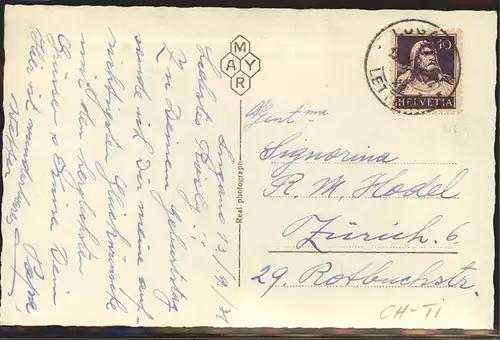 Lugano 13/9./31
Liebstes Rösly!
Zu Deinem Geburtstag
sende ich Dir meine auf-
richtigsten Glückwünsche
mit den herzlichsten
Grüssen & Emma Dein
Hier ist wunderbares Wetter
Papa
MAYR
Real photograph
HELVETIA
10
Gent ma
Signorina
R. M. Hodel
Zürich. 6
29. Rotbuchstr.
CH-TI